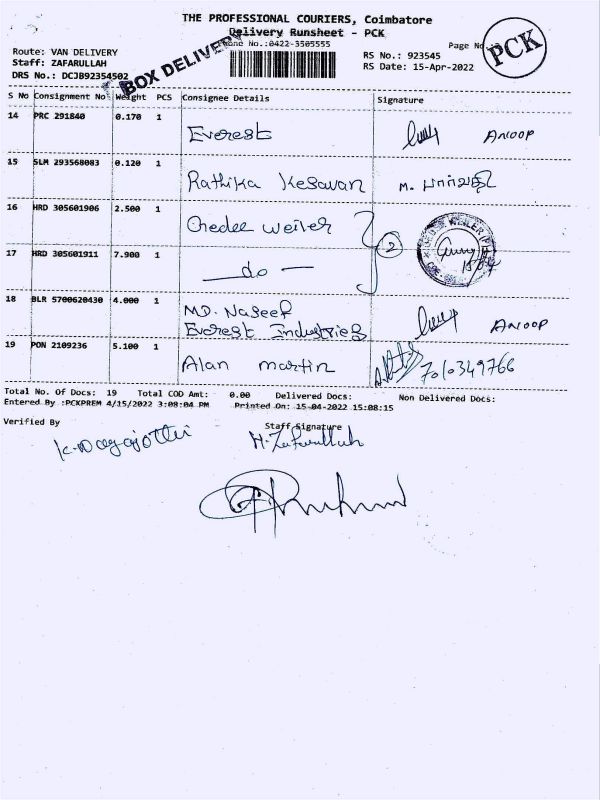 THE PROFESSIONAL COURIERS, Coimbatore
Delivery Runsheet - PCK
Phone No.:0422-3505555
Page No
PCK
Route: VAN DELIVERY
Staff: ZAFARULLAH
DRS No.: DCJB92354502
BOX DELIVERY
RS No.: 923545
RS Date: 15-Apr-2022
S No Consignment No Weight PCS Consignee Details Signature
14 PRC 291840 0.170 1 Everest ANOOP
15 SLM 293568083 0.120 1 Rathika Kesavan M. பார்வதி
16 HRD 305601906 2.500 1 Credee weiler
2
17 HRD 305601911 7.900 1 — do —
18 BLR 5700620430 4.000 1 MD. Naseef
Everest Industries ANOOP
19 PON 2109236 5.100 1 Alan martin 7010349766
Total No. Of Docs: 19 Total COD Amt: 0.00 Delivered Docs: Non Delivered Docs:
Entered By :PCKPREM 4/15/2022 3:08:04 PM Printed On: 15-04-2022 15:08:15
Verified By Staff Signature
H. Zafarullah